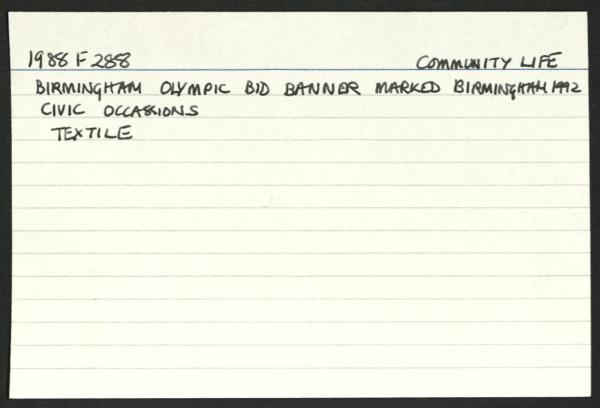 1988 F 288 COMMUNITY LIFE
BIRMINGHAM OLYMPIC BID BANNER MARKED BIRMINGHAM 1992
CIVIC OCCASSIONS
TEXTILE